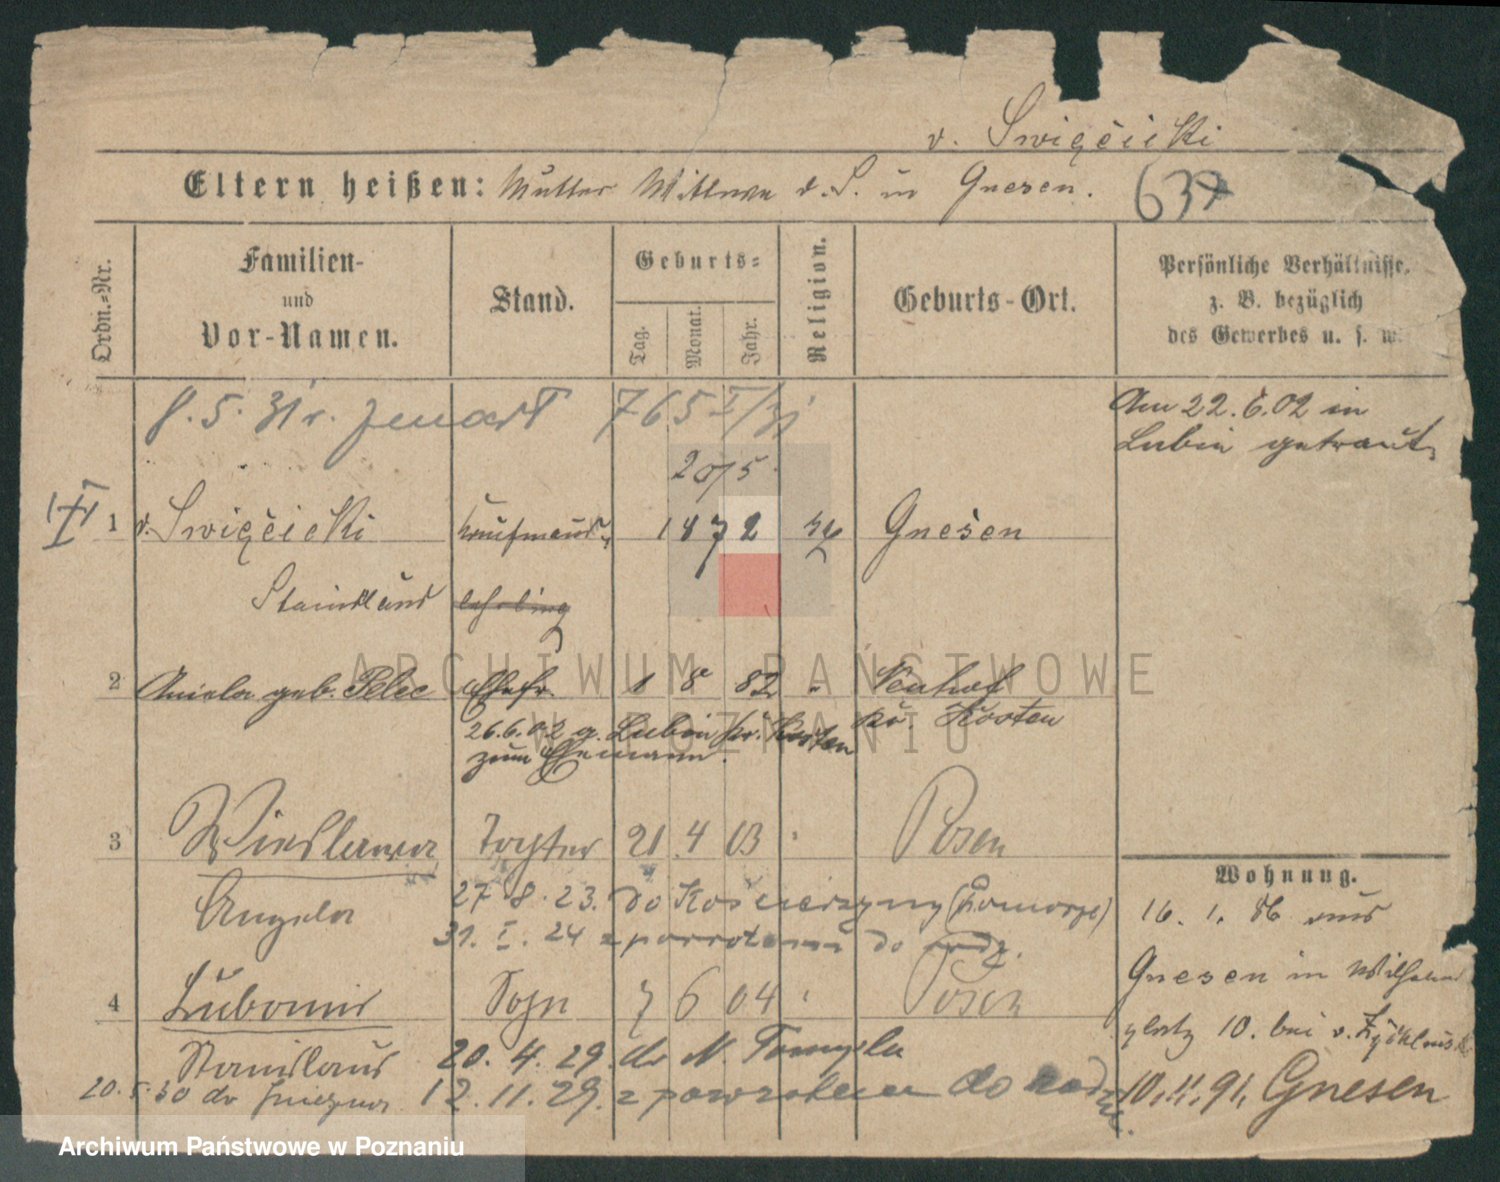 v. Swięcicki
Eltern heißen: Mutter Wittwe v. S. in Gnesen. 637
Ordn.-Nr.
Familien-
und
Vor-Namen.
Stand.
Geburts-
Tag.
Monat.
Jahr.
Religion.
Geburts-Ort.
Persönliche Verhältnisse,
z. B. bezüglich
des Gewerbes u. s. w.
765
Am 22. 6. 02 in
Lubin getraut.
20/5
1 v. Swięcicki Kaufmanns 1872 Gnesen
Stanislaus lehrling
2 Aniela geb. Pelec Ehefr. 1 8 82 " Neuhof
Kr. Kosten
26.6.02 a. Lubin Kr. Kosten
zum Ehemann.
3 Wieslawa Tochter 21 4 03 Posen
Angela
27. 8. 23. do Kościerzyny (Pomorze)
31. I. 24 z powrotem do rodz.
4 Lubomir Sohn 7 6 04 Posen
Stanislaus
20. 4. 29. do N. Tomyśla
20. 5. 30 do Gniezna
12. 11. 29. z powrotem do rodz.
Wohnung.
16. 1. 86 aus
Gnesen in Wilhelms
platz 10. bei v.
10. 11. 91. Gnesen
ARCHIWUM PAŃSTWOWE
W POZNANIU
Archiwum Państwowe w Poznaniu